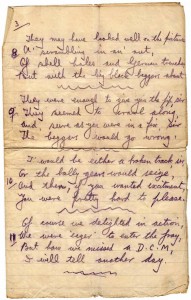 3
They may have looked well on the picture
8. A' scrambling in an' out,
Of shell holes and German trenches
But with the big black beggars about
They were enough to give you the fits, sir
9. They seemed to crawl along,
And, sure as you were in a fix, sir
The beggars would go wrong.
I would be either a broken track
Or the bally gears would seize,
10. And then, if you wanted excitement,
You were pretty hard to please.
Of course we delighted in action,
11 We were eager to enter the fray,
But how we missed a D.C.M.
I will tell another day.